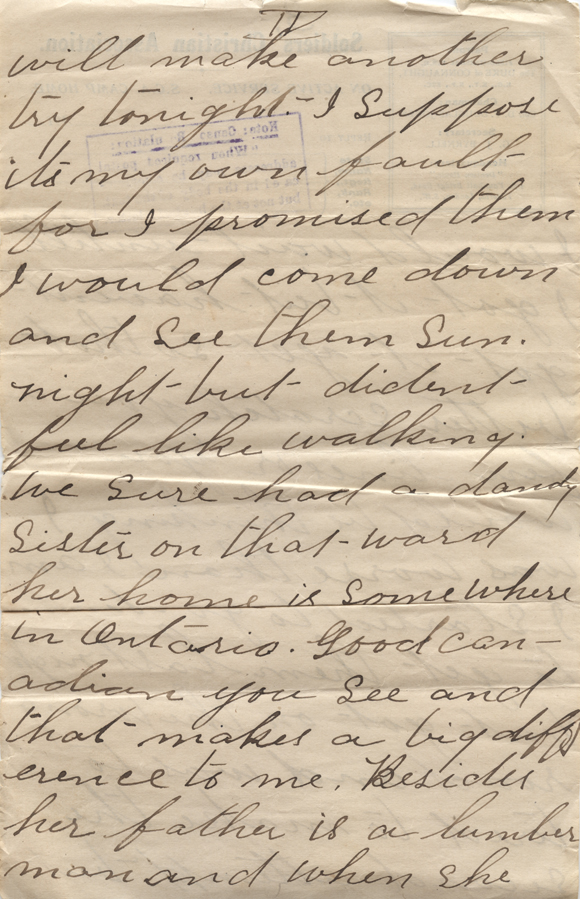 II
will make another
try tonight. I suppose
its my own fault
for I promised them
I would come down
and see them Sun.
night but dident
feel like walking.
We sure had a dandy
Sister on that ward
her home is somewhere
in Ontario. Good can-
adian you see and
that makes a big diff
erence to me. Besides
her father is a lumber
man and when she